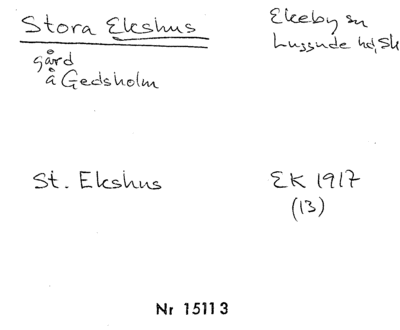 Stora Ekshus
Ekeby sn
Luggude hd, Sk
gård
å Gedsholm
St. Ekshus
EK 1917
(13)
Nr 15113